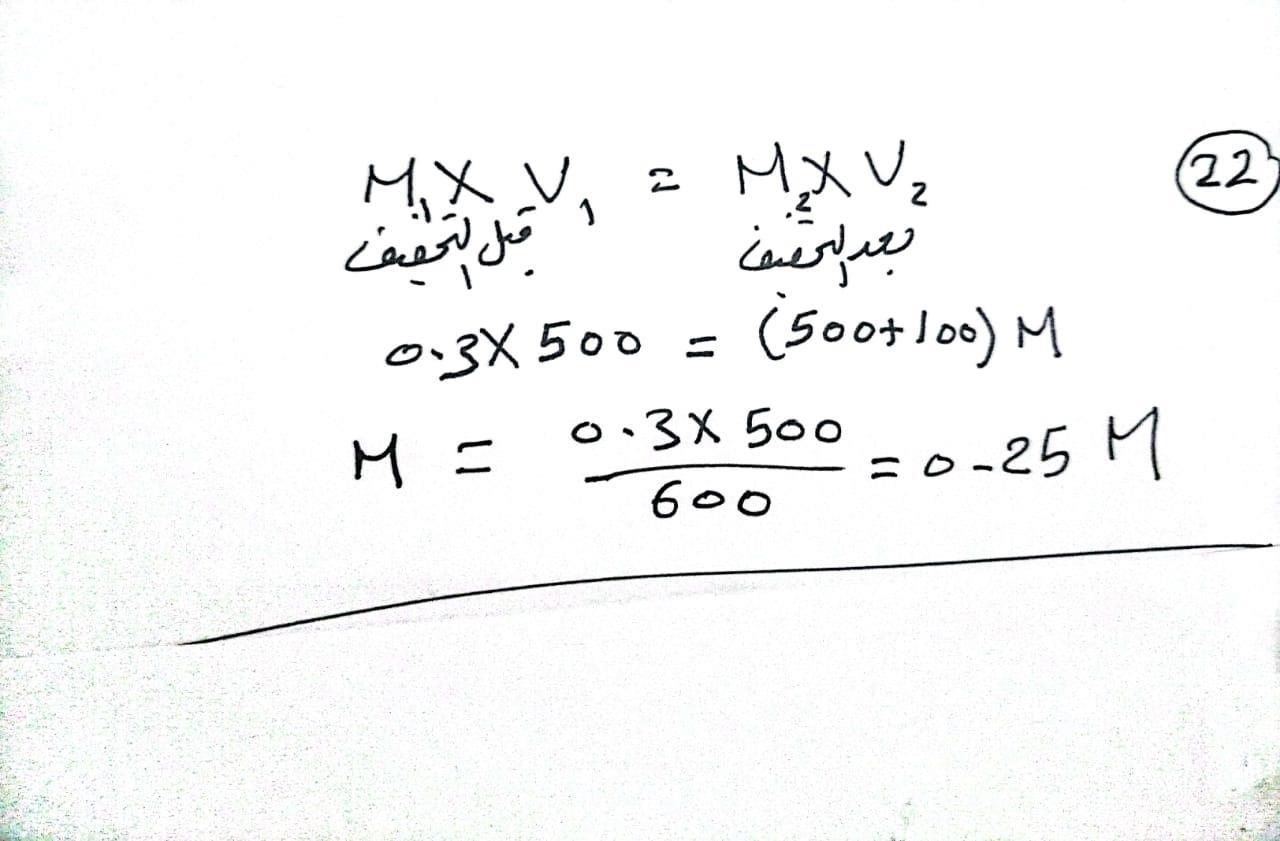 22
M₁ X V₁ = M₂ X V₂
قبل التخفيف بعد التخفيف
0.3 X 500 = (500+100) M
M = 0.3 X 500 / 600 = 0.25 M